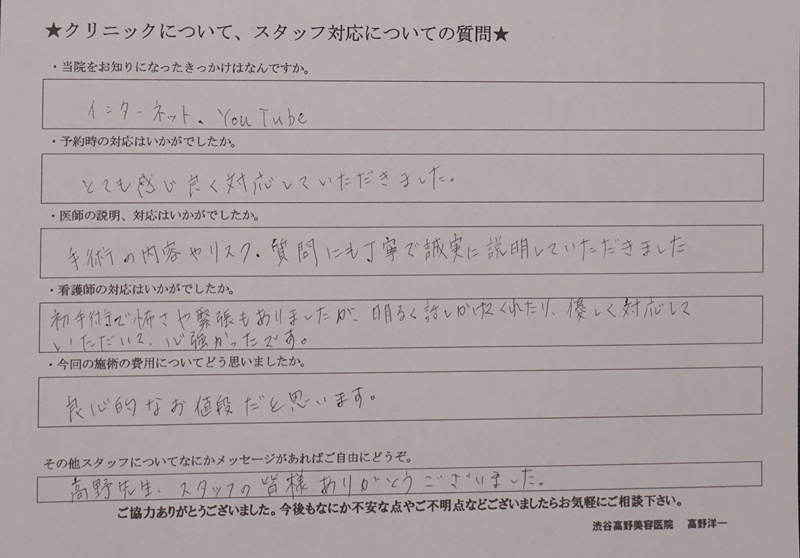 ★クリニックについて、スタッフ対応についての質問★
・当院をお知りになったきっかけはなんですか。
インターネット、YouTube
・予約時の対応はいかがでしたか。
とても感じ良く対応していただきました。
・医師の説明、対応はいかがでしたか。
手術の内容やリスク、質問にも丁寧で誠実に説明していただきました
・看護師の対応はいかがでしたか。
初手術で怖さや緊張もありましたが、明るく話しかけてくれたり、優しく対応して
いただいて、心強かったです。
・今回の施術の費用についてどう思いましたか。
良心的なお値段だと思います。
その他スタッフについてなにかメッセージがあればご自由にどうぞ。
高野先生、スタッフの皆様ありがとうございました。
ご協力ありがとうございました。今後もなにか不安な点やご不明点などございましたらお気軽にご相談下さい。
渋谷高野美容医院　高野洋一